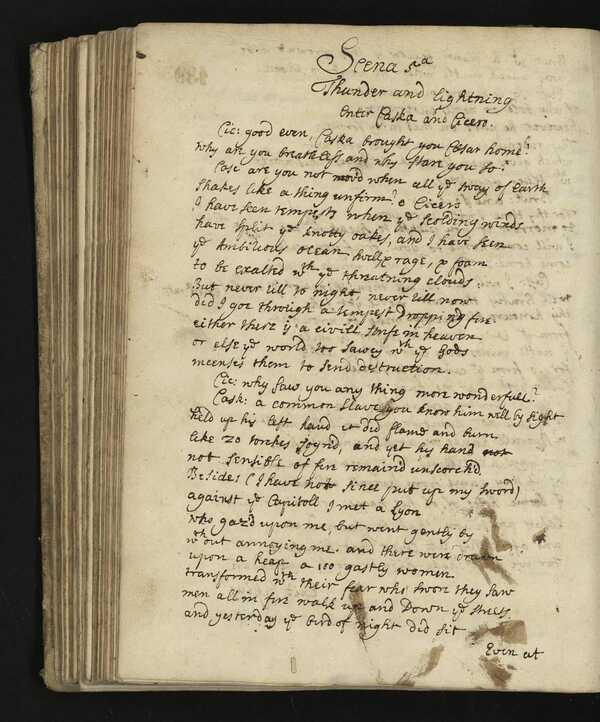 Scena 5a
Thunder and lightning
Enter Caska and Cicero.
Cic: good even, Caska brought you Cesar home?
Why are you breathless and why stare you so?
Casc are you not mov'd when all ye sway of Earth
Shakes like a thing unfirm? o Cicero
I have seen tempests when ye scolding winds
have split ye knotty oakes, and I have seen
ye Ambitious ocean swell, rage, & foam
to be exalted wth ye threatning clouds:
But never till to night, never till now
did I goe through a tempest dropping fire
either there is a civill strife in heaven
or else ye world too sawcy wth ye Gods
incenses them to send destruction.
Cic: why saw you any thing more wonderfull?
Cask: a common slave you know him well by sight
held up his left hand wt did flame and burn
like 20 torches joynd, and yet his hand not
not sensible of fire remaind unscorchd
Besides (I have not since put up my sword)
against ye Capitoll I met a Lyon
who gaz'd upon me, but went gently by
wth out annoying me. and there were drawn
upon a heap a 100 gastly women
transformed wth their fear who swore they saw
men all in fire walk up and Down ye streets
and yesterday ye bird of night did sit
Even at